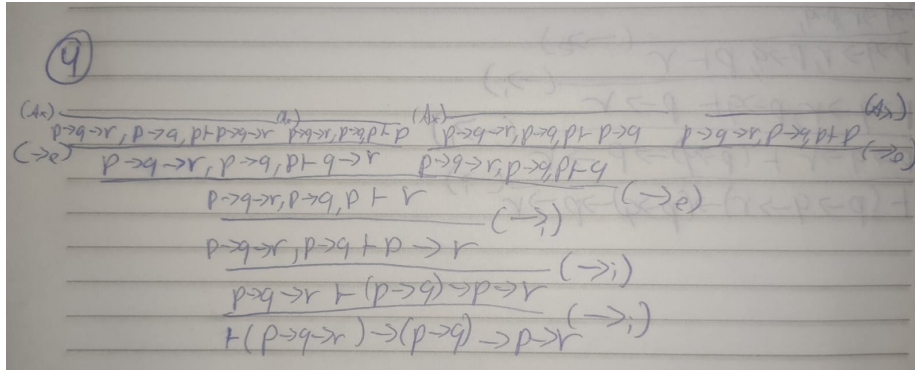 4
(Ax) (ax) (Ax) (Ax)
p→q→r, p→q, p ⊢ p→q→r p→q→r, p→q, p ⊢ p p→q→r, p→q, p ⊢ p→q p→q→r, p→q, p ⊢ p
(→e) p→q→r, p→q, p ⊢ q→r p→q→r, p→q, p ⊢ q (→e)
p→q→r, p→q, p ⊢ r (→e)
p→q→r, p→q ⊢ p→r (→i)
p→q→r ⊢ (p→q)→p→r (→i)
⊢ (p→q→r)→(p→q)→p→r (→i)